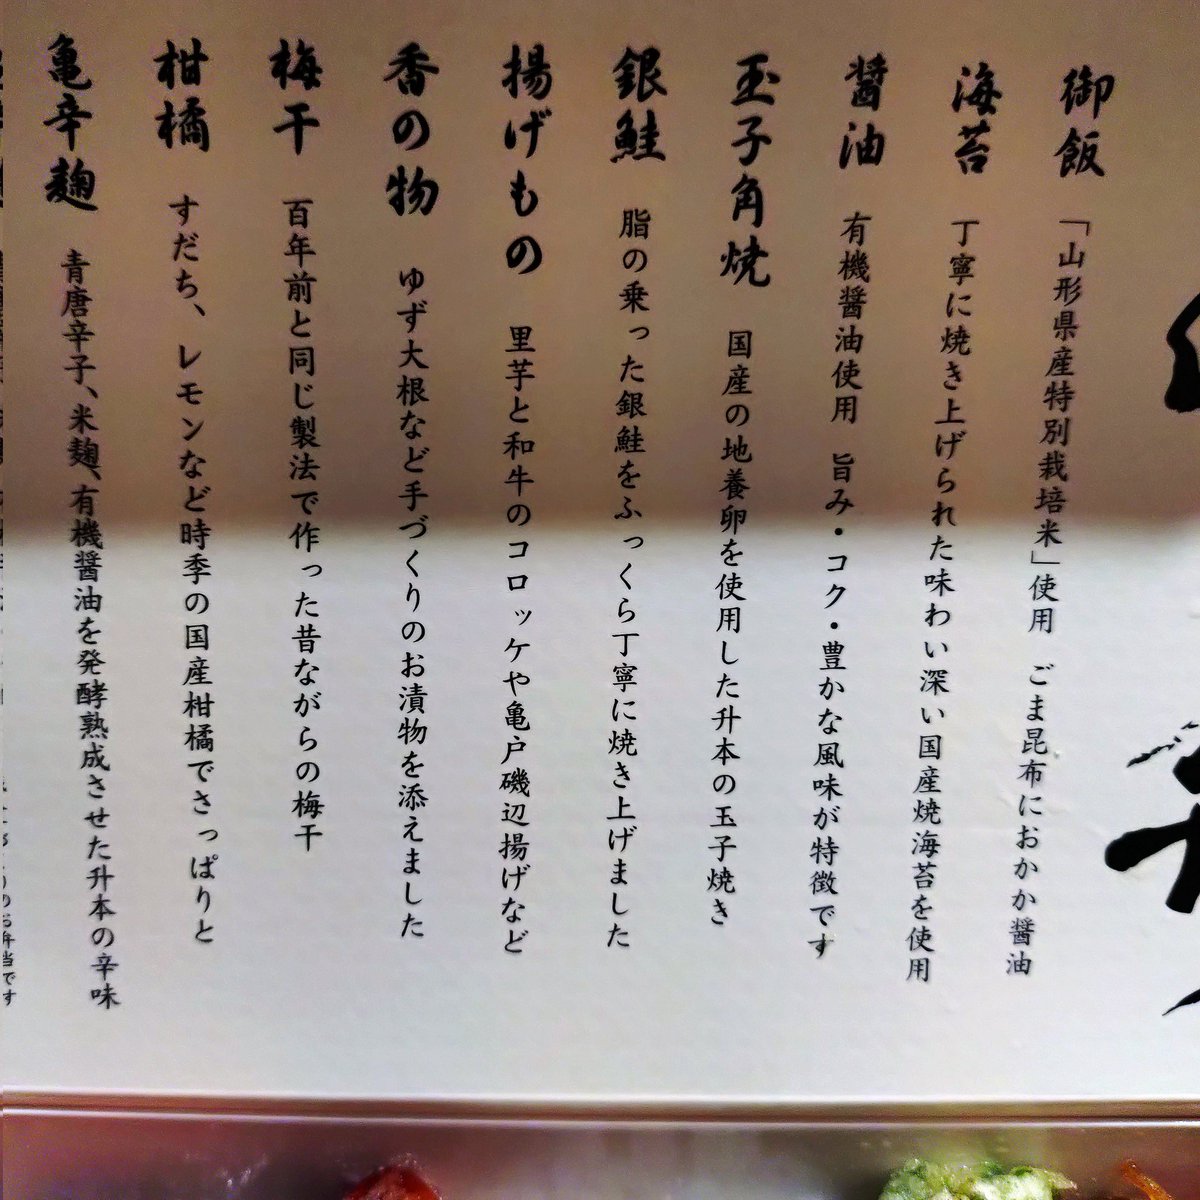 御飯 「山形県産特別栽培米」使用 ごま昆布におかか醤油
海苔 丁寧に焼き上げられた味わい深い国産焼海苔を使用
醤油 有機醤油使用 旨み・コク・豊かな風味が特徴です
玉子角焼 国産の地養卵を使用した升本の玉子焼き
銀鮭 脂の乗った銀鮭をふっくら丁寧に焼き上げました
揚げもの 里芋と和牛のコロッケや亀戸磯辺揚げなど
香の物 ゆず大根など手づくりのお漬物を添えました
梅干 百年前と同じ製法で作った昔ながらの梅干
柑橘 すだち、レモンなど時季の国産柑橘でさっぱりと
亀辛麹 青唐辛子、米麹、有機醤油を発酵熟成させた升本の辛味
のお弁当です